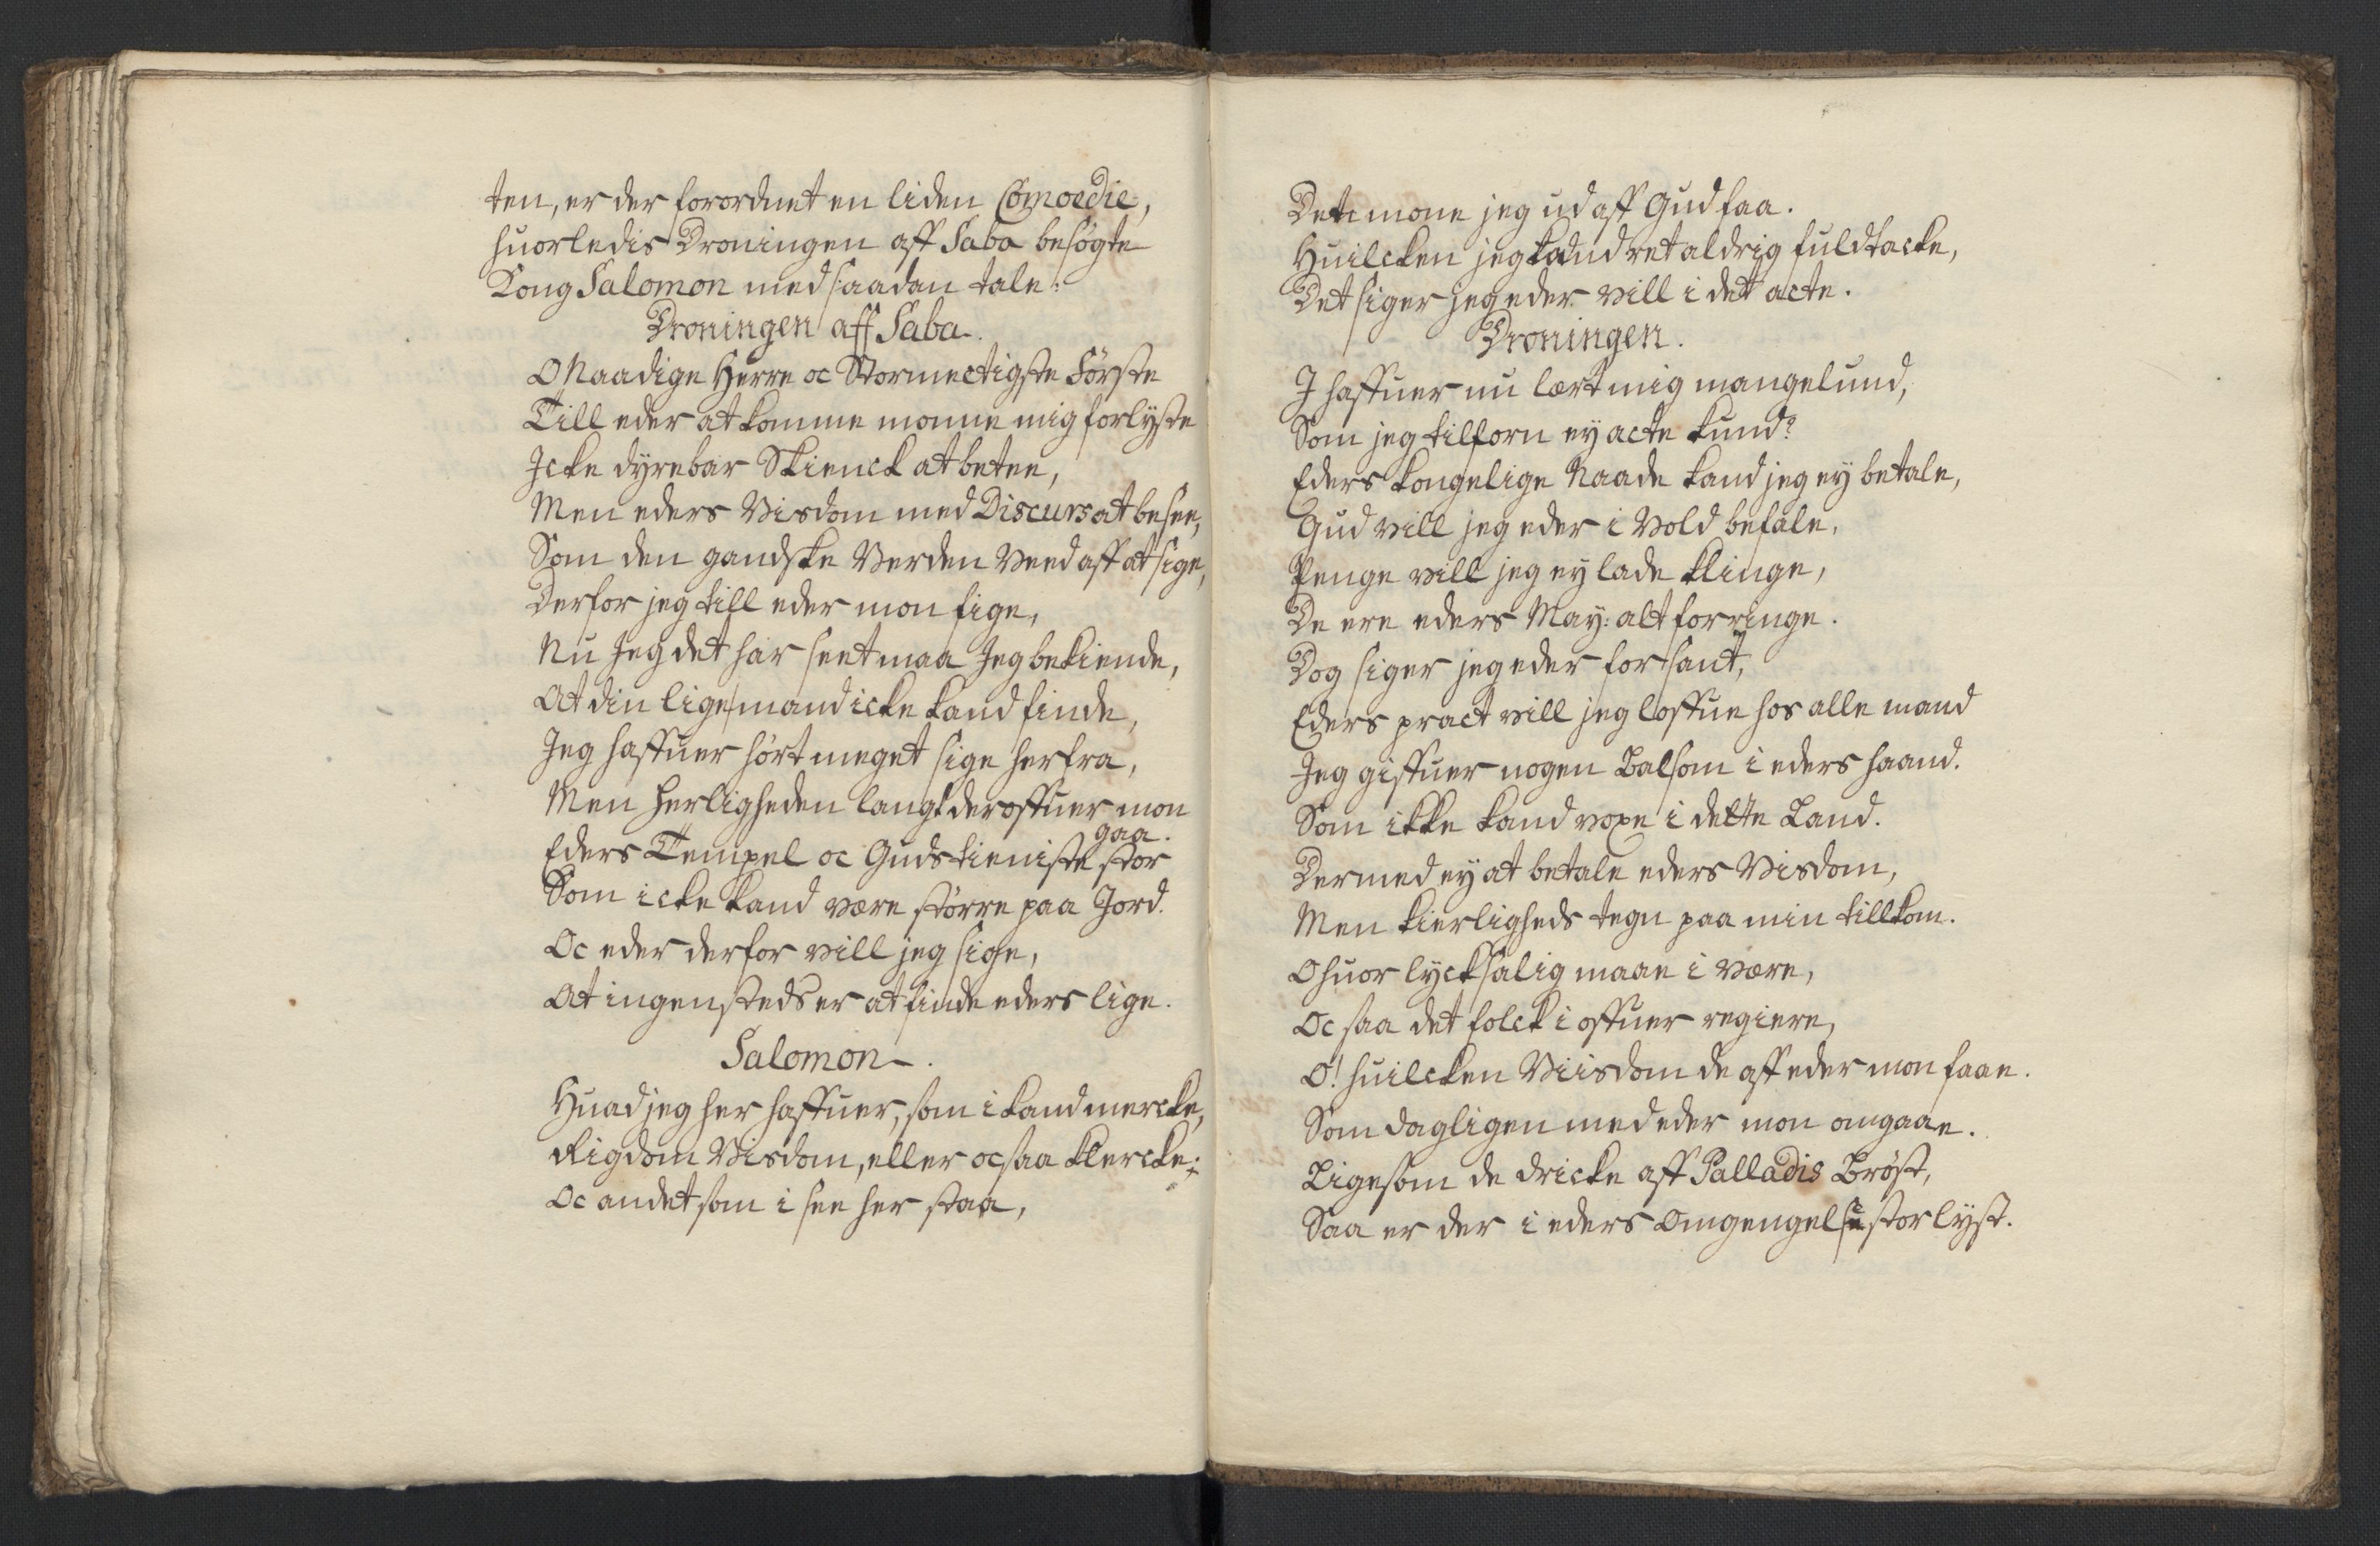 ten, er der forordnet en liden Comoedie,
huorledis Dronningen aff Saba besøgte
Kong Salomon med saadan tale:
Dronningen aff Saba.
O Naadige Herre oc Stormectigste Første
Till eder at komme monne mig forlyste
Icke dyrebar Skienck at betee,
Men eders Visdom med Discurs at besee,
Som den gandske Verden veed aff at sige,
Derfor jeg till eder mon fige,
Nu Jeg det har seet maa Jeg bekiende,
At din lige mand icke kand finde,
Jeg haffuer hört meget sige herfra,
Men Herligheden langt deroffuer mon
gaa.
Eders Tempel oc Gudstieniste stor
Som icke kand være större paa Jord.
Oc eder derfor vill jeg sige,
At ingensteds er at finde eders lige.
Salomon.
Huad jeg her haffuer, som i kand mercke,
Rigdom Visdom, eller ocsaa klercke:
Oc andet som i see her staa,
Dete mone jeg ud aff Gud faa.
Huilcken jeg kand ret aldrig fuldtacke,
Det siger jeg eder vill i det acte.
Droningen.
I haffuer nu lært mig mangelund,
Som jeg tilforn ey acte kund?
Eders kongelige Naade kand jeg ey betale,
Gud vill jeg eder i Vold befale,
Penge vill jeg ey lade klinge,
De ere eders May: alt forringe.
Dog siger jeg eder for sant,
Eders pract vill jeg loffue hos alle mand
Jeg giffuer nogen Balsom i eders haand.
Som ikke kand voxe i dette Land.
Dermed ey at betale eders Visdom,
Men kierligheds tegn paa min tillkom.
O huor lycksalig maae i være,
Oc saa det folck i offuer regiere,
O! huilcken Viisdom de aff eder mon faae.
Som dagligen med eder mon omgaae.
Ligesom de dricke aff Palladis Bröst,
Saa er der i eders Omgengelse stor lyst.